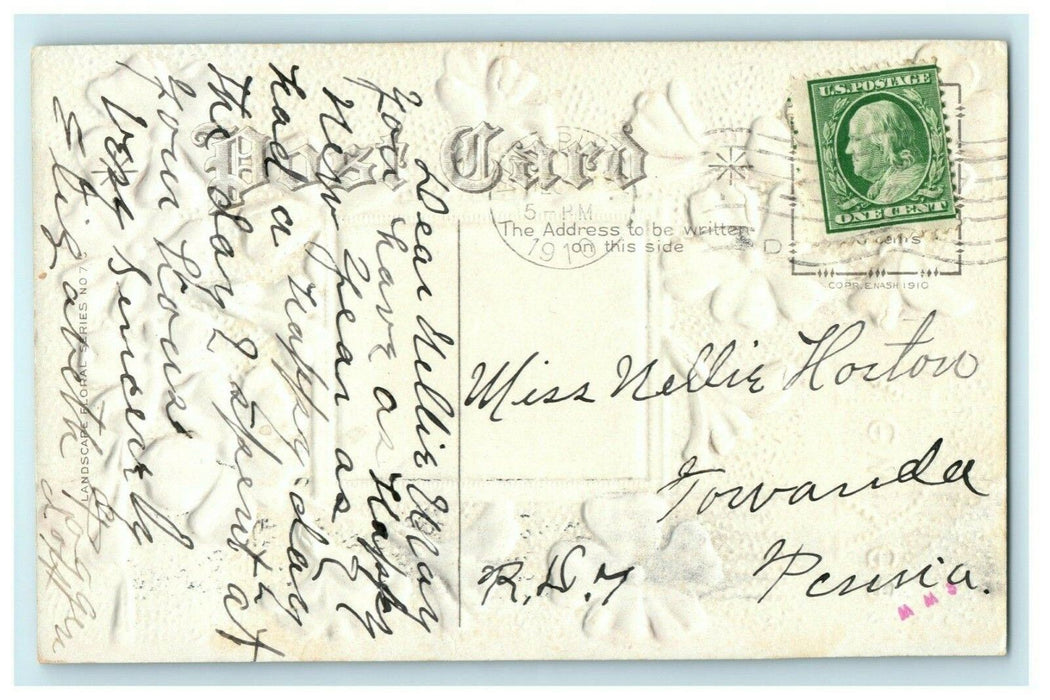 Post Card
The Address to be written
on this side
5 - PM
1910
U.S. POSTAGE
ONE CENT
COPR. E. NASH 1910
LANDSCAPE FLORAL SERIES NO 7
Dear Nellie May
you have as Happy
New Year as I
had a Happy day
the day I spent at
your House
Very Sincerely
Elizabeth
Miss Nellie Horton
Towanda
R.D.7 Penna.